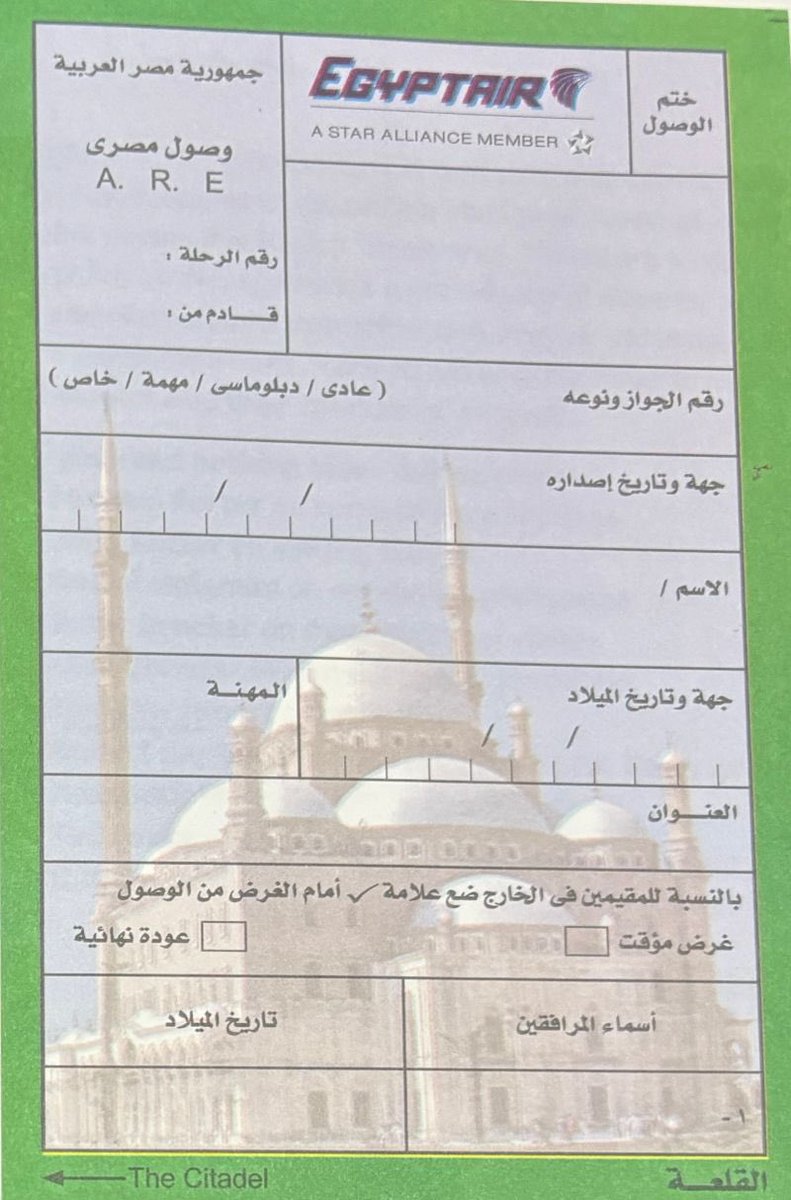 جمهورية مصر العربية
وصول مصرى
A. R. E
رقم الرحلة :
قـــادم من :
EGYPTAIR
A STAR ALLIANCE MEMBER
ختم
الوصول
رقم الجواز ونوعه ( عادى / دبلوماسى / مهمة / خاص )
جهة وتاريخ إصداره
/ /
الاسم /
جهة وتاريخ الميلاد
/ /
المهنـة
العنـــوان
بالنسبة للمقيمين فى الخارج ضع علامة ✓ أمام الغرض من الوصول
غرض مؤقت
عودة نهائية
أسماء المرافقين
تاريخ الميلاد
١ -
القلعـــة
The Citadel